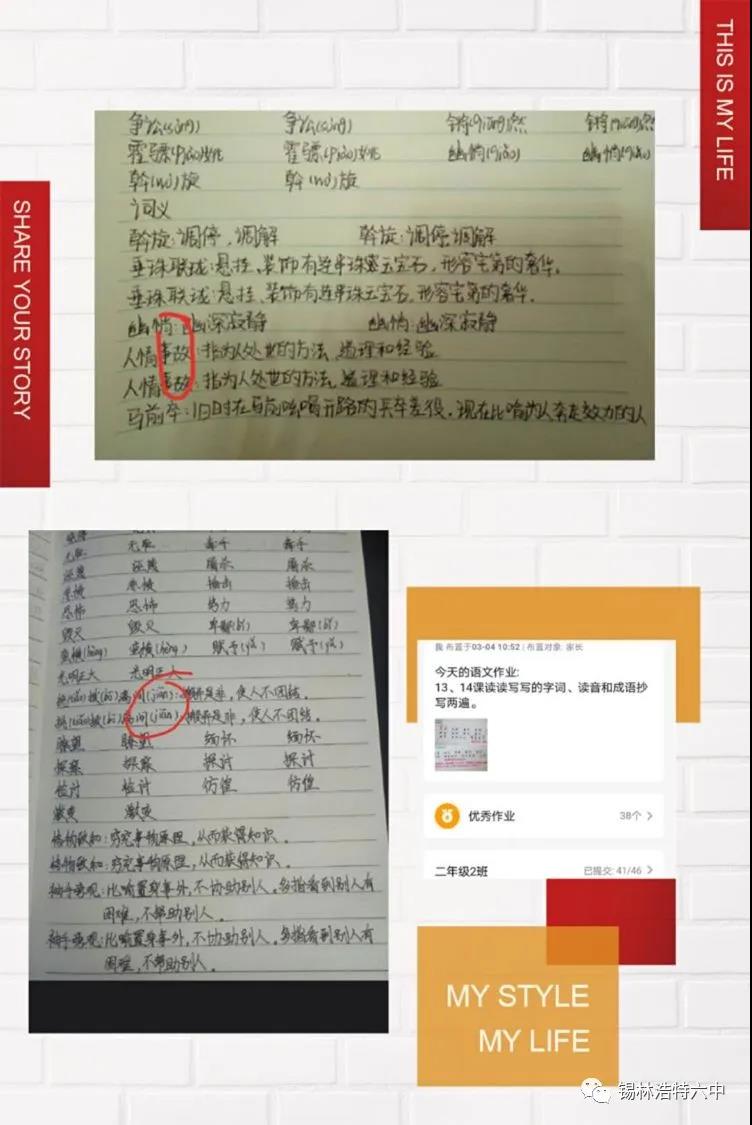 THIS IS MY LIFE
SHARE YOUR STORY
争讼(sòng) 争讼(sòng) 锵(qiāng)然 锵(qiāng)然
霍骠(piào)姚 霍骠(piào)姚 幽悄(qiǎo) 幽悄(qiǎo)
斡(wò)旋 斡(wò)旋
词义
斡旋:调停,调解 斡旋:调停,调解
垂珠联珑:悬挂、装饰有连串珠玉宝石,形容宅第的奢华。
垂珠联珑:悬挂、装饰有连串珠玉宝石,形容宅第的奢华。
幽悄:幽深寂静 幽悄:幽深寂静
人情事故:指为人处世的方法、道理和经验
人情事故:指为人处世的方法、道理和经验
马前卒:旧时在马前吆喝开路的兵卒差役,现在比喻为人奔走效力的人
无耻 无耻 牵手 牵手
诬蔑 诬蔑 屠杀 屠杀
卑劣
恐怖 恐怖 势力 势力
毁灭 毁灭 卑鄙(bǐ) 卑鄙(bǐ)
蛮横(hèng) 蛮横(hèng) 赋予(yǔ) 赋予(yǔ)
光明正大 光明正大
挑(tiǎo)拨(bō)离间(jiàn):搬弄是非,使人不团结。
挑(tiǎo)拨(bō)离间(jiàn):搬弄是非,使人不团结。
瞭望 瞭望 缅怀 缅怀
探察 探察 探讨 探讨
检讨 检讨 彷徨 彷徨
激变 激变
格物致知:穷究事物原理,从而获得知识。
格物致知:穷究事物原理,从而获得知识。
袖手旁观:比喻置身事外,不协助别人。多指看到别人有
困难,不帮助别人。
袖手旁观:比喻置身事外,不协助别人。多指看到别人有
困难,不帮助别人。
我 布置于03-04 10:52 | 布置对象: 家长
今天的语文作业:
13、14课读读写写的字词、读音和成语抄
写两遍。
优秀作业 38个
二年级2班 已提交: 41/46
MY STYLE
MY LIFE
锡林浩特六中